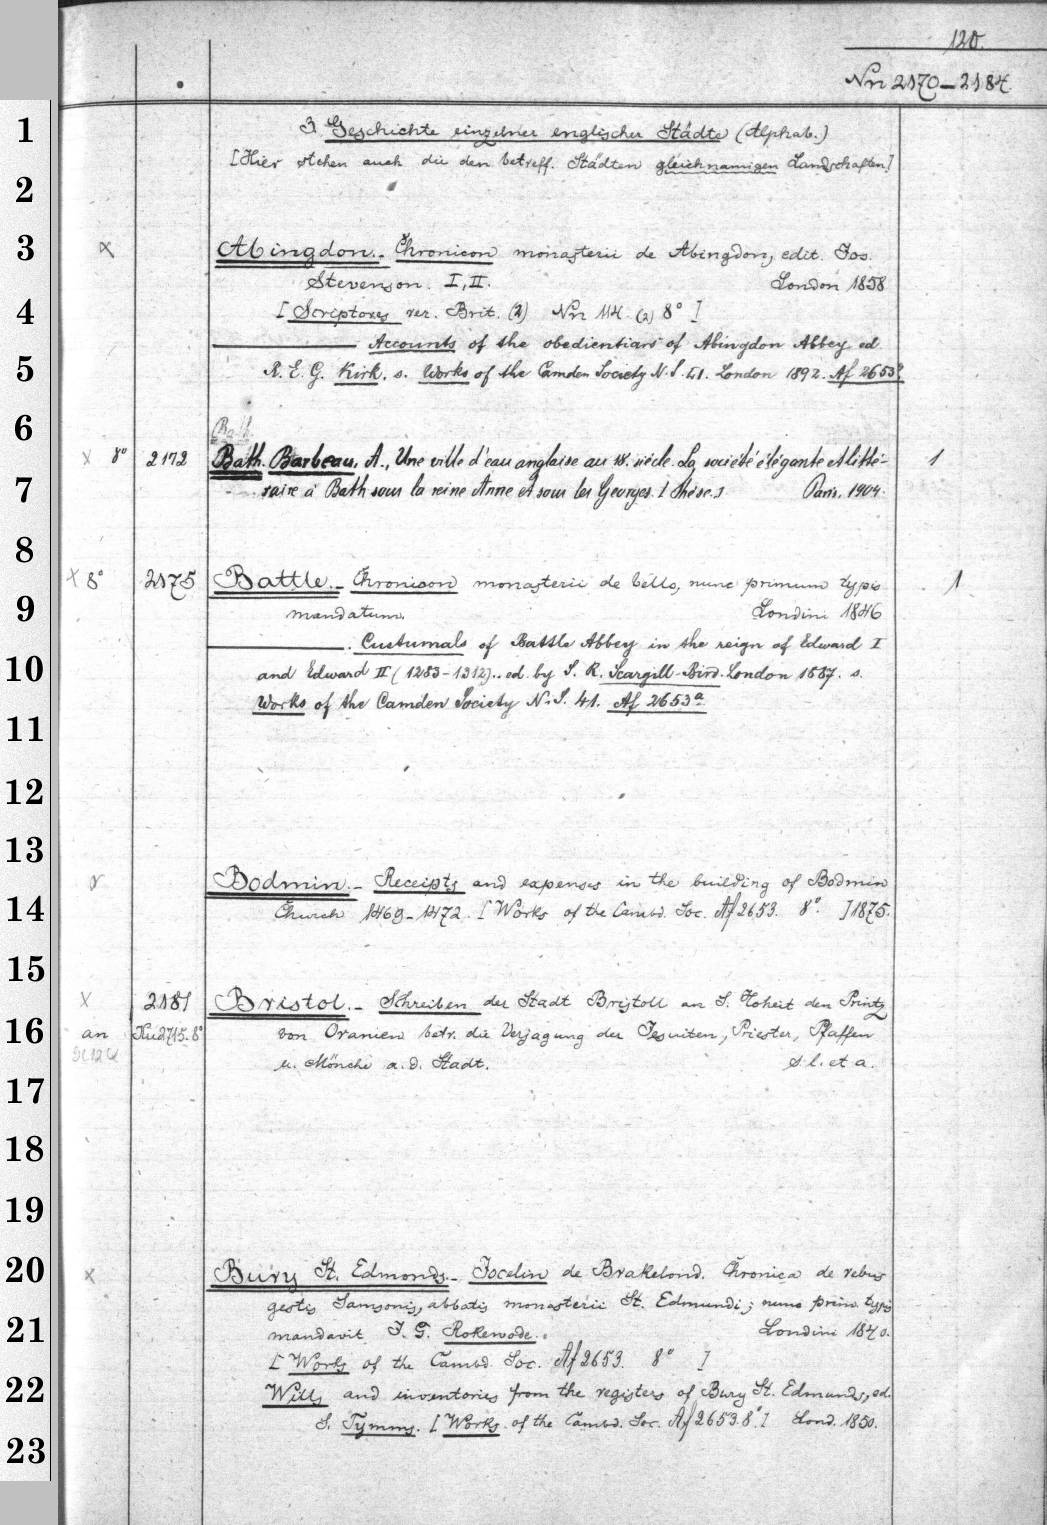 120.
Nrr 2170-2184.
1
3. Geschichte einzelner englischer Städte (Alphab.)
[Hier stehen auch die den betreff. Städten gleichnamigen Landschaften]
2
3
x Abingdon.- Chronicon monasterii de Abingdon, edit. Jos.
Stevenson. I, II. London 1858
4
[Scriptores rer. Brit. (2) Nrr 114 (2) 8° ]
Accounts of the obedientiars of Abingdon Abbey ed.
5
R. E. G. Kirk. s. Works of the Camden Society N. S. 51. London 1892. Af 2653ª.
6
Bath
x 8° 2172 Bath. Barbeau, A., Une ville d'eau anglaise au 18. siècle. La société élégante et litté- 1
7
raire à Bath sous la reine Anne et sous les Georges. [Thèse.] Paris. 1904.
8
x 8° 2175 Battle.- Chronicon monasterii de bello, nunc primum typis 1
9
mandatum. Londini 1846
. Custumals of Battle Abbey in the reign of Edward I
10
and Edward II (1283-1312).. ed. by S. R. Scargill-Bird. London 1887. s.
Works of the Camden Society N. S. 41. Af 2653ª
11
12
13
Bodmin.- Receipts and expenses in the building of Bodmin
14
Church 1469-1472. [Works of the Cambd. Soc. Af 2653. 8°. ] 1875.
15
x 2181 Bristol.- Schreiben der Stadt Bristoll an S. Hoheit den Printz
16
an 2715.8° von Oranien betr. die Verjagung der Jesuiten, Priester, Pfaffen
u. Mönche a. d. Stadt. s. l. et a.
17
18
19
20
x Bury St. Edmonds.- Jocelin de Brakelond. Chronica de rebus
gestis Samsonis, abbatis monasterii St. Edmundi; nunc prim. typis
21
mandavit J. G. Rokewode. Londini 1840.
[Works of the Cambd. Soc. Af 2653. 8° ]
22
Wills and inventories from the registers of Bury St. Edmunds, ed.
S. Tymms. [Works of the Cambd. Soc. Af 2653.8°.] Lond. 1850.
23